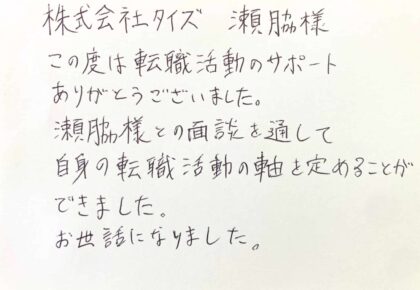 株式会社タイズ　瀬脇様
この度は転職活動のサポート
ありがとうございました。
瀬脇様との面談を通して
自身の転職活動の軸を定めることが
できました。
お世話になりました。